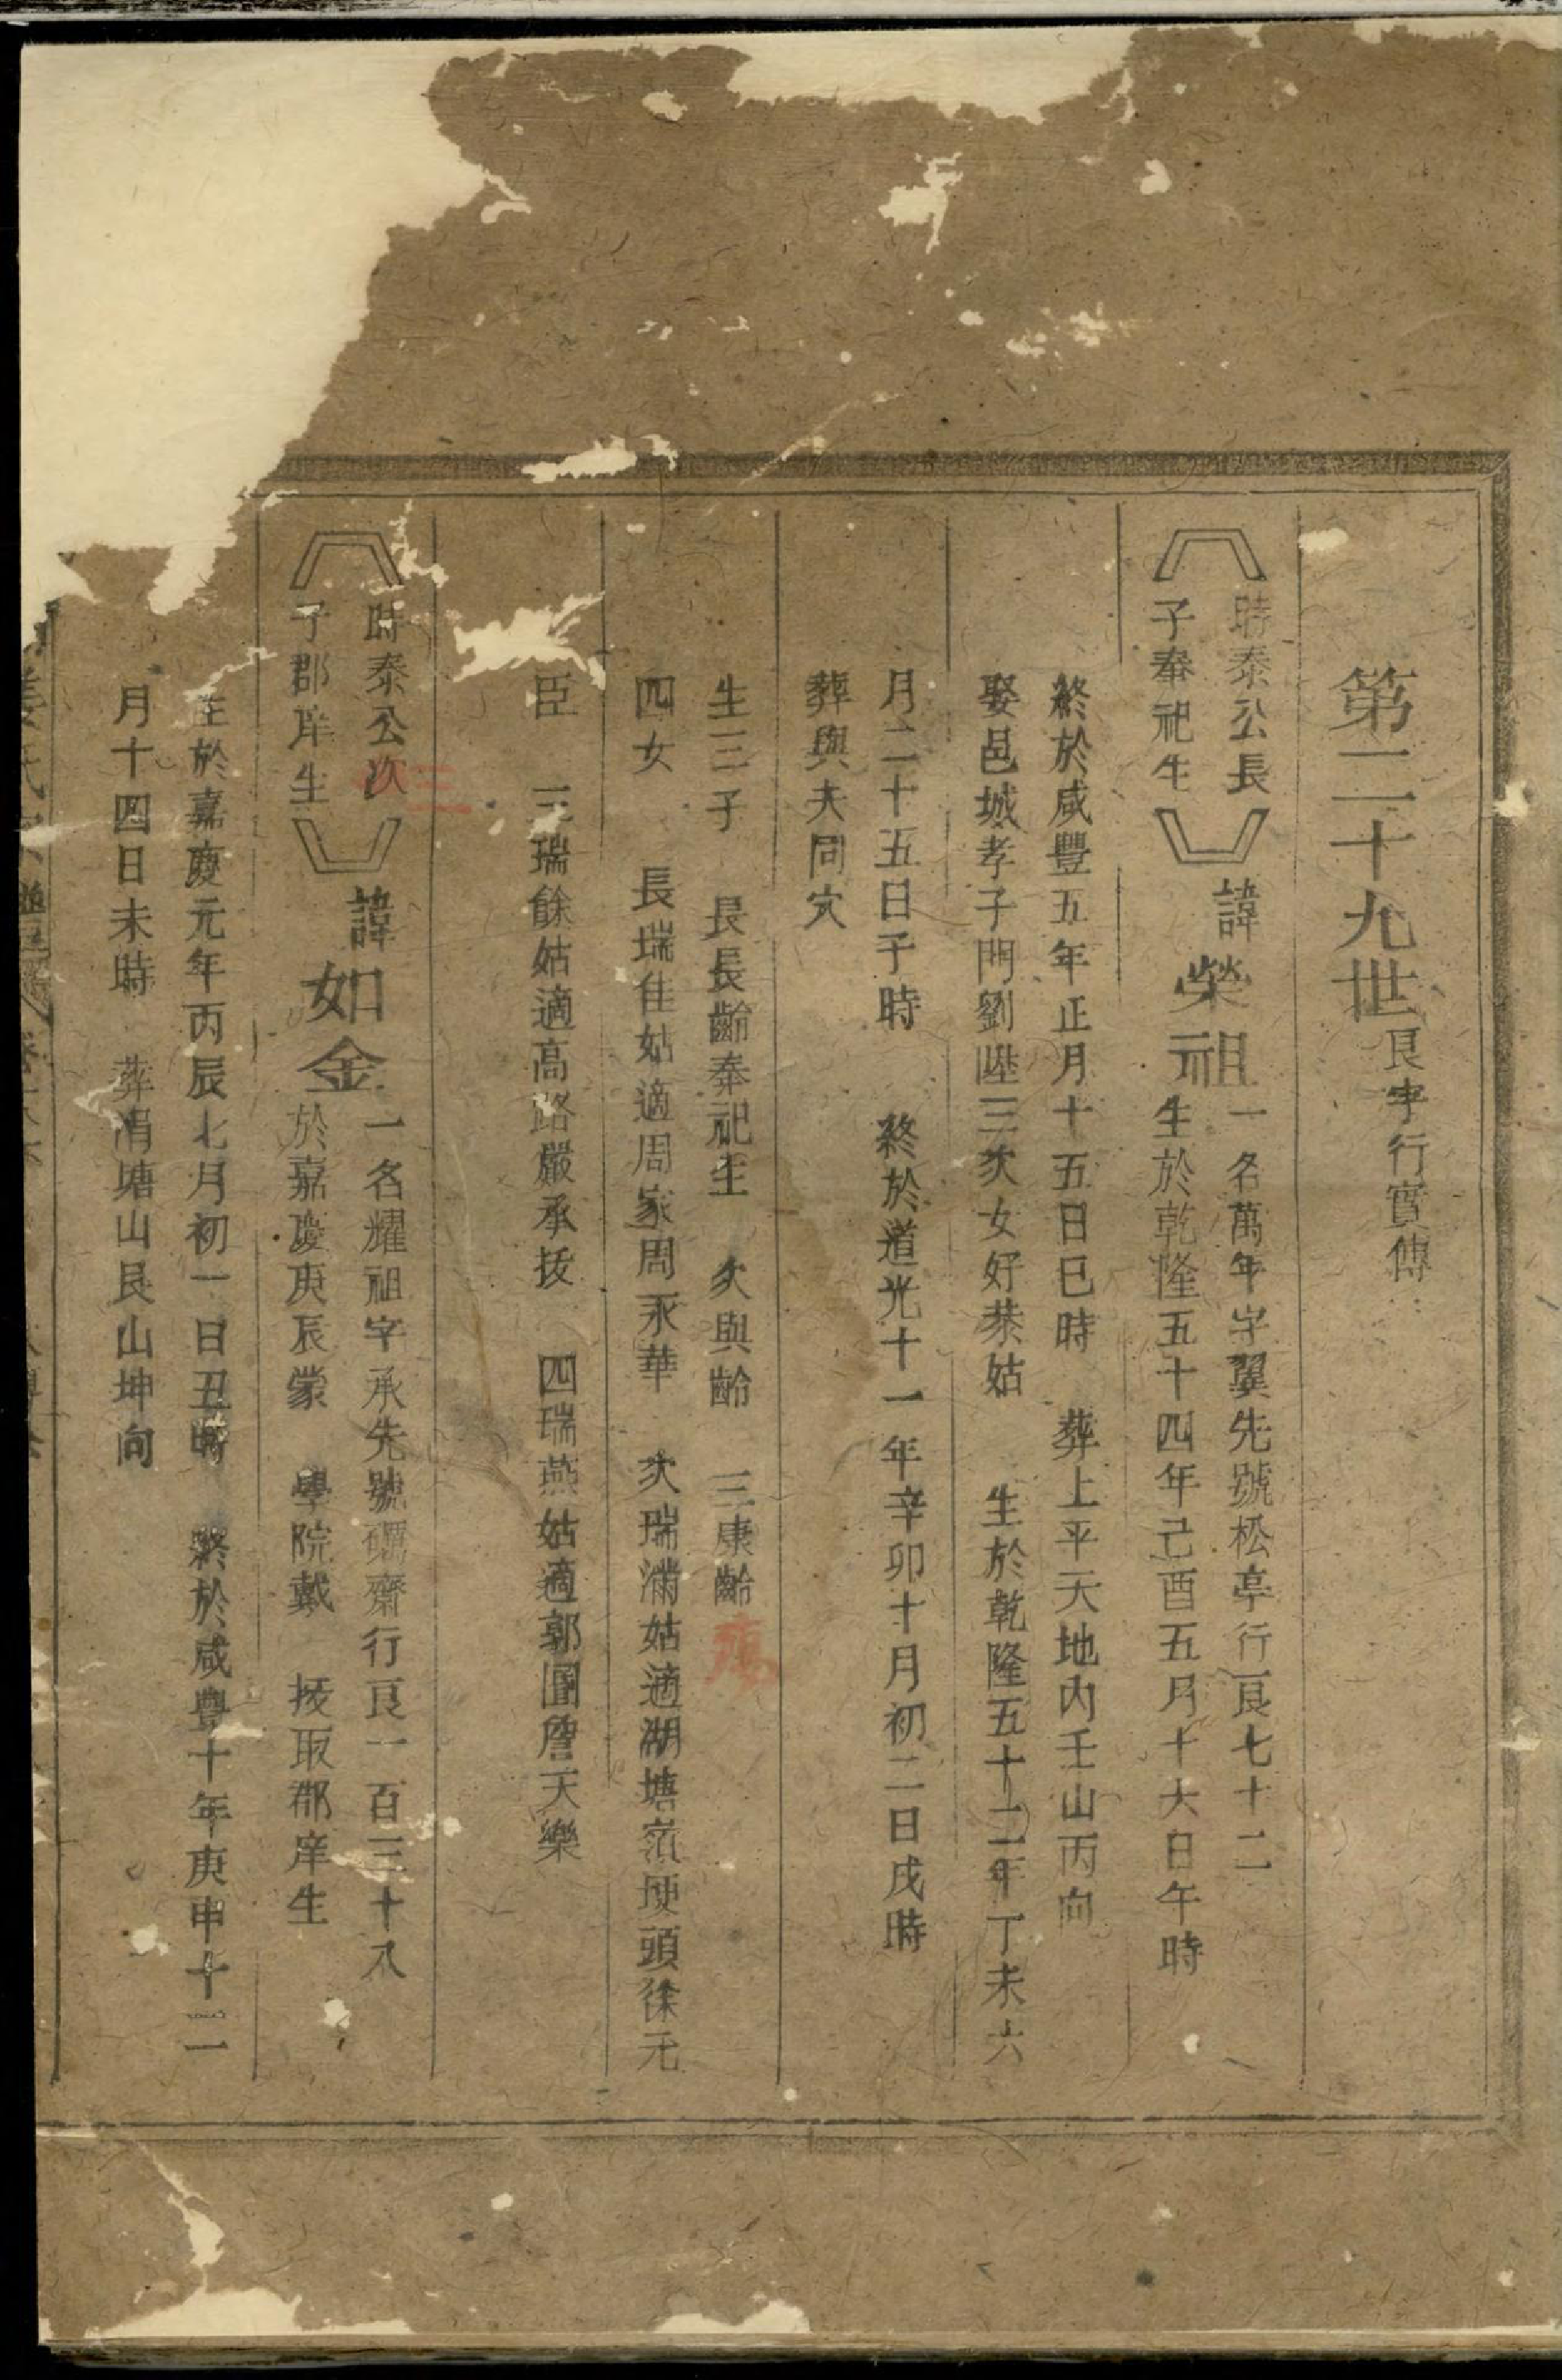 第二十九世艮字行實傳
時泰公長
子奉祀生
諱榮祖
一名萬年字翼先號松亭行艮七十二
生於乾隆五十四年己酉五月十六日午時
終於咸豐五年正月十五日巳時 葬上平天地內壬山丙向
娶邑城孝子門劉陞三次女好恭姑 生於乾隆五十二年丁未六
月二十五日子時 終於道光十一年辛卯十月初二日戌時
葬與夫同穴
生三子 長長齡奉祀生 次與齡 三康齡 殤
四女 長瑞佳姑適周家周永華 次瑞滿姑適湖塘嶺埂頭徐元
臣 三瑞餘姑適高路嚴承拔 四瑞燕姑適郭圍詹天樂
時泰公次
子郡庠生
三
諱如金
一名耀祖字承先號礪齋行艮一百三十八
於嘉慶庚辰蒙 學院戴 拔取郡庠生
生於嘉慶元年丙辰七月初一日丑時 終於咸豐十年庚申十二
月十四日未時 葬涓塘山艮山坤向
姜氏